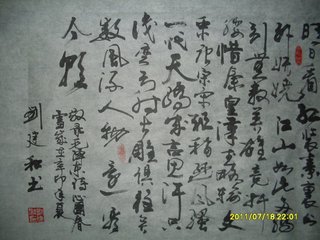 日看红装素裹分
外妖娆江山如此多娇
引無数英雄竞折
腰惜秦皇漢武略输文
采唐宗宋祖稍逊風骚
一代天骄成吉思汗只
识弯弓射大雕俱往矣
数風流人物还看
今朝
毛泽东诗沁園春
雪岁在辛卯年夏
刘建和书
2011/07/18 22:01